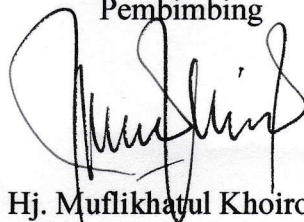 Pembimbing
Hj. Muflikhatul Khoiro